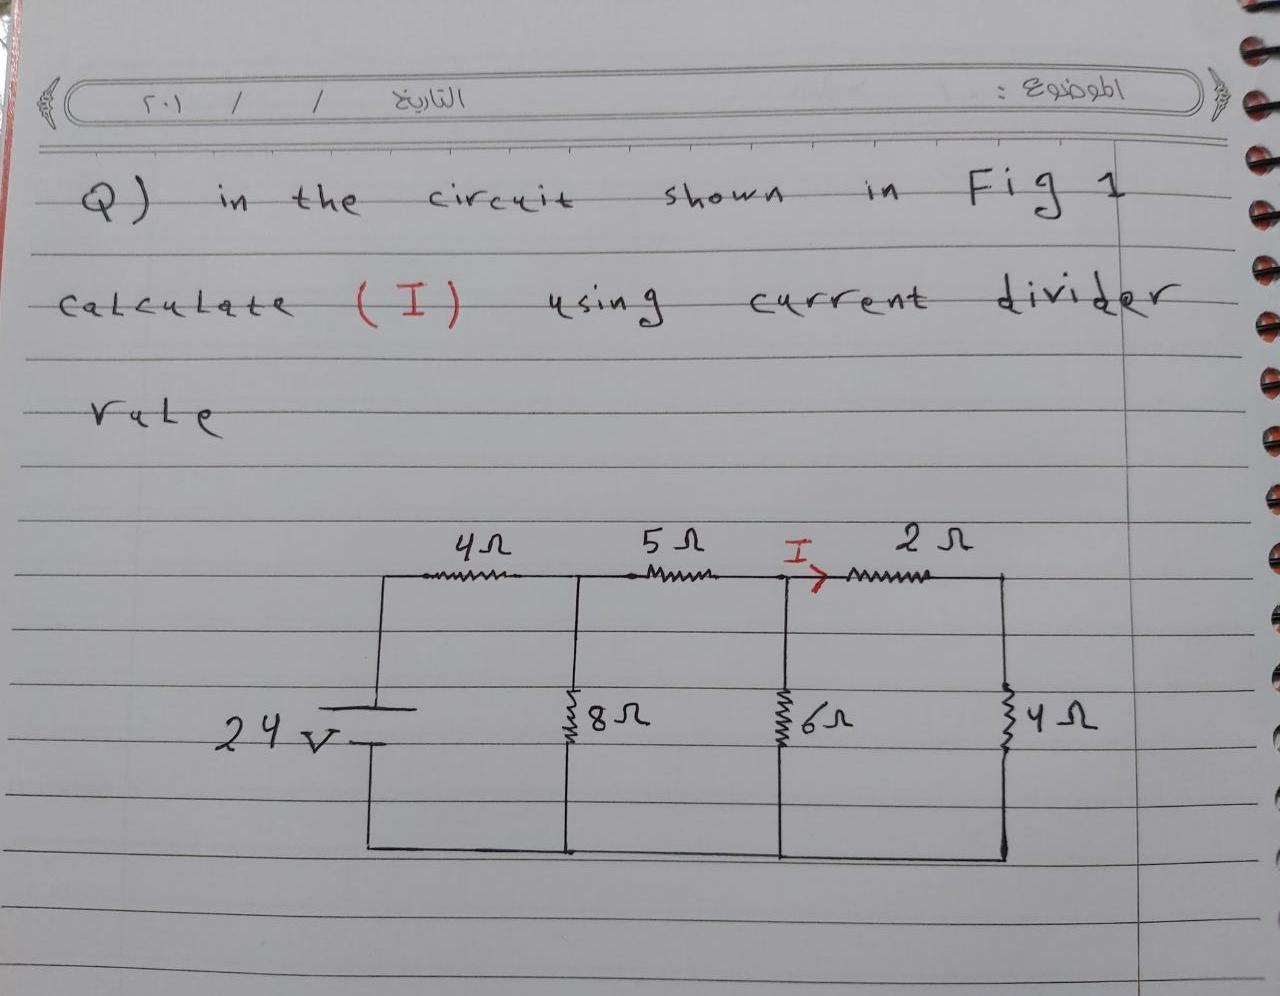 الموضوع :
التاريخ / / ٢٠١
Q) in the circuit shown in Fig 1
calculate (I) using current divider
rule
4Ω 5Ω I 2Ω
24 V 8Ω 6Ω 4Ω